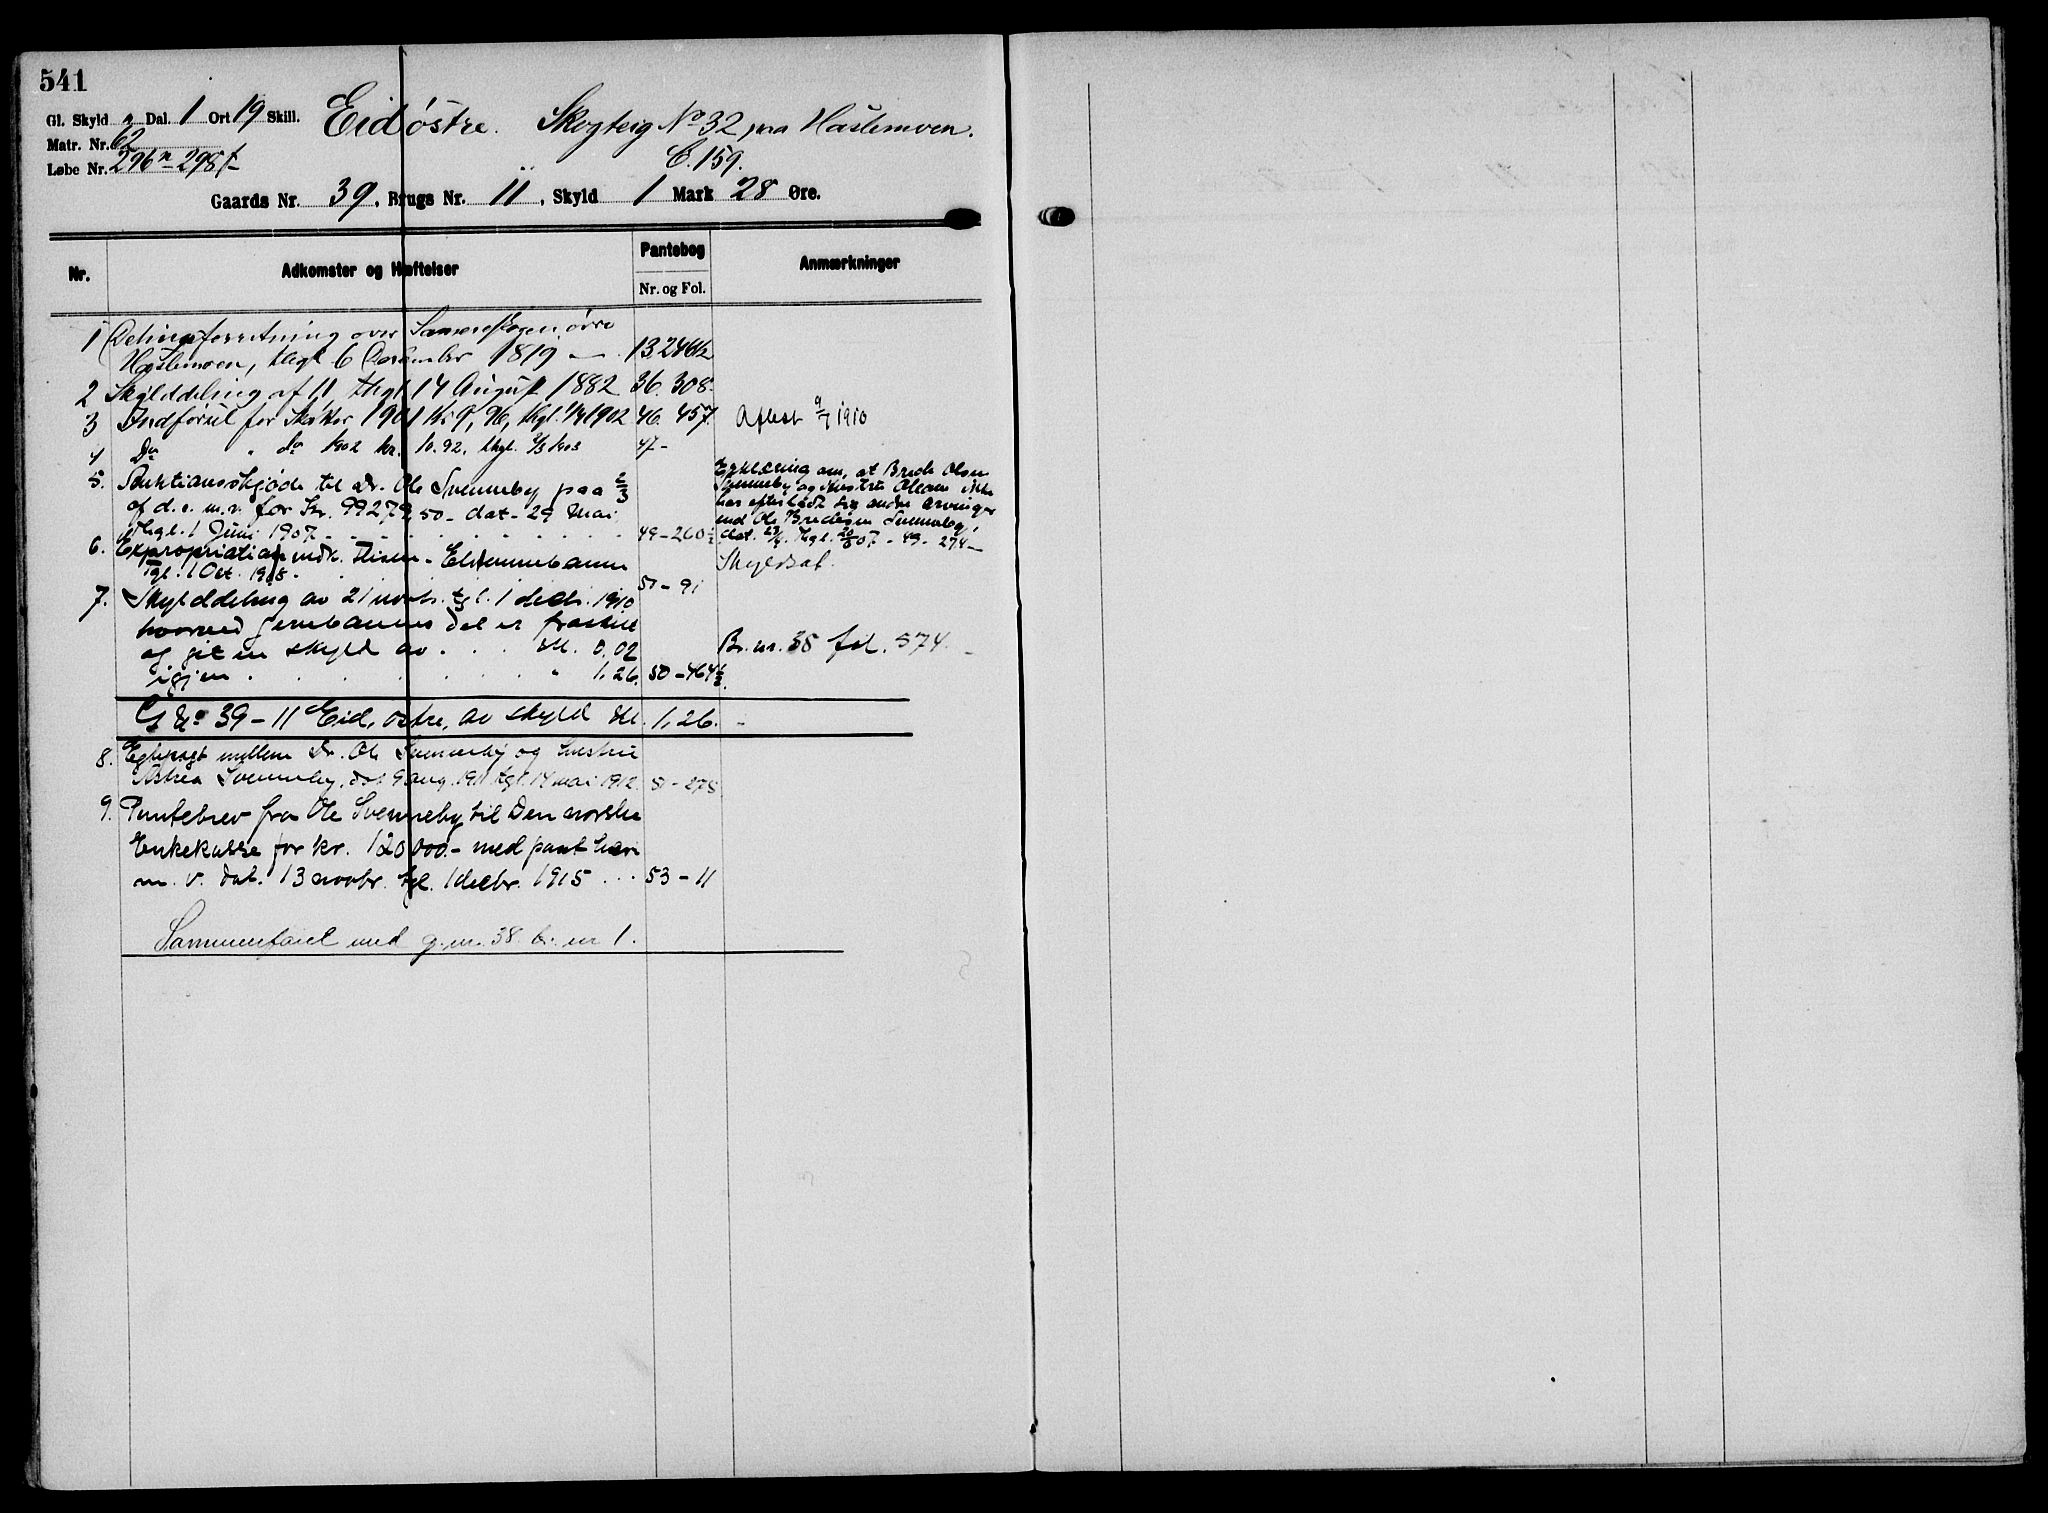 541
Gl. Skyld 2 Dal. 1 Ort 19 Skill. Eid østre. Skogteig No 32 paa Haslemoen.
Matr. Nr. 62
Løbe Nr. 296n - 298f C. 159.
Gaards Nr. 39, Brugs Nr. 11, Skyld 1 Mark 28 Øre.
Nr. Adkomster og Hæftelser Pantebog Anmærkninger
Nr. og Fol.
1 Delingsforretning over Sameieskogen øvre
Haslemoen, thgl 6 December 1819 — 13.246½
2 Skylddeling af 11, thgl 14 August 1882 36. 308.
3 Indførsel for Skatter 1901 Kr 9,96, thgl. 1902 46. 457. Aflest 9/7 1910
4 Do " do 1902 kr. 10.92, thgl. 1903 47-
5. Auktionsskjøde til Dr. Ole Svenneby paa 2/3
af d. e. m. v. for Kr. 99279,50 - dat - 29 Mai
Thgl. 1 Juni 1907. 49-260½
Erklæring om, at Brede Olsen
Svenneby og Hustru ikke
har efterladt sig andre arvinger
end Ole Bredesen Svenneby,
dat. Thgl. 07. - 49 - 274 -
6. Expropriation Flisen - Elverumbanen Skyldsat.
Tgl. 1 Oct. 1908. 50 - 91
7. Skylddeling av 21 novbr. tgl. 1 decbr. 1910
hvorved jernbanens del er fraskilt
og git en skyld av . . . Mk. 0.02 Br. nr. 38 fol. 574. -
igjen . . . . . . " 1,26. 50 - 464½.
G No 39 - 11 Eid, østre, av skyld Mk. 1,26. -
8. Egtepagt mellem Dr. Ole Svenneby og hustru
Svenneby, dat 9 aug. 1911 tgl. 14 mai 1912. 51 - 278
9. Pantebrev fra Ole Svenneby til Den norske
Enkekasse for kr. 120000.- med pant heri
m. v. dat. 13 novbr. tgl. 1 decbr. 1915 ... 53 - 11
Sammenføiet med g. nr. 38. br. nr 1.